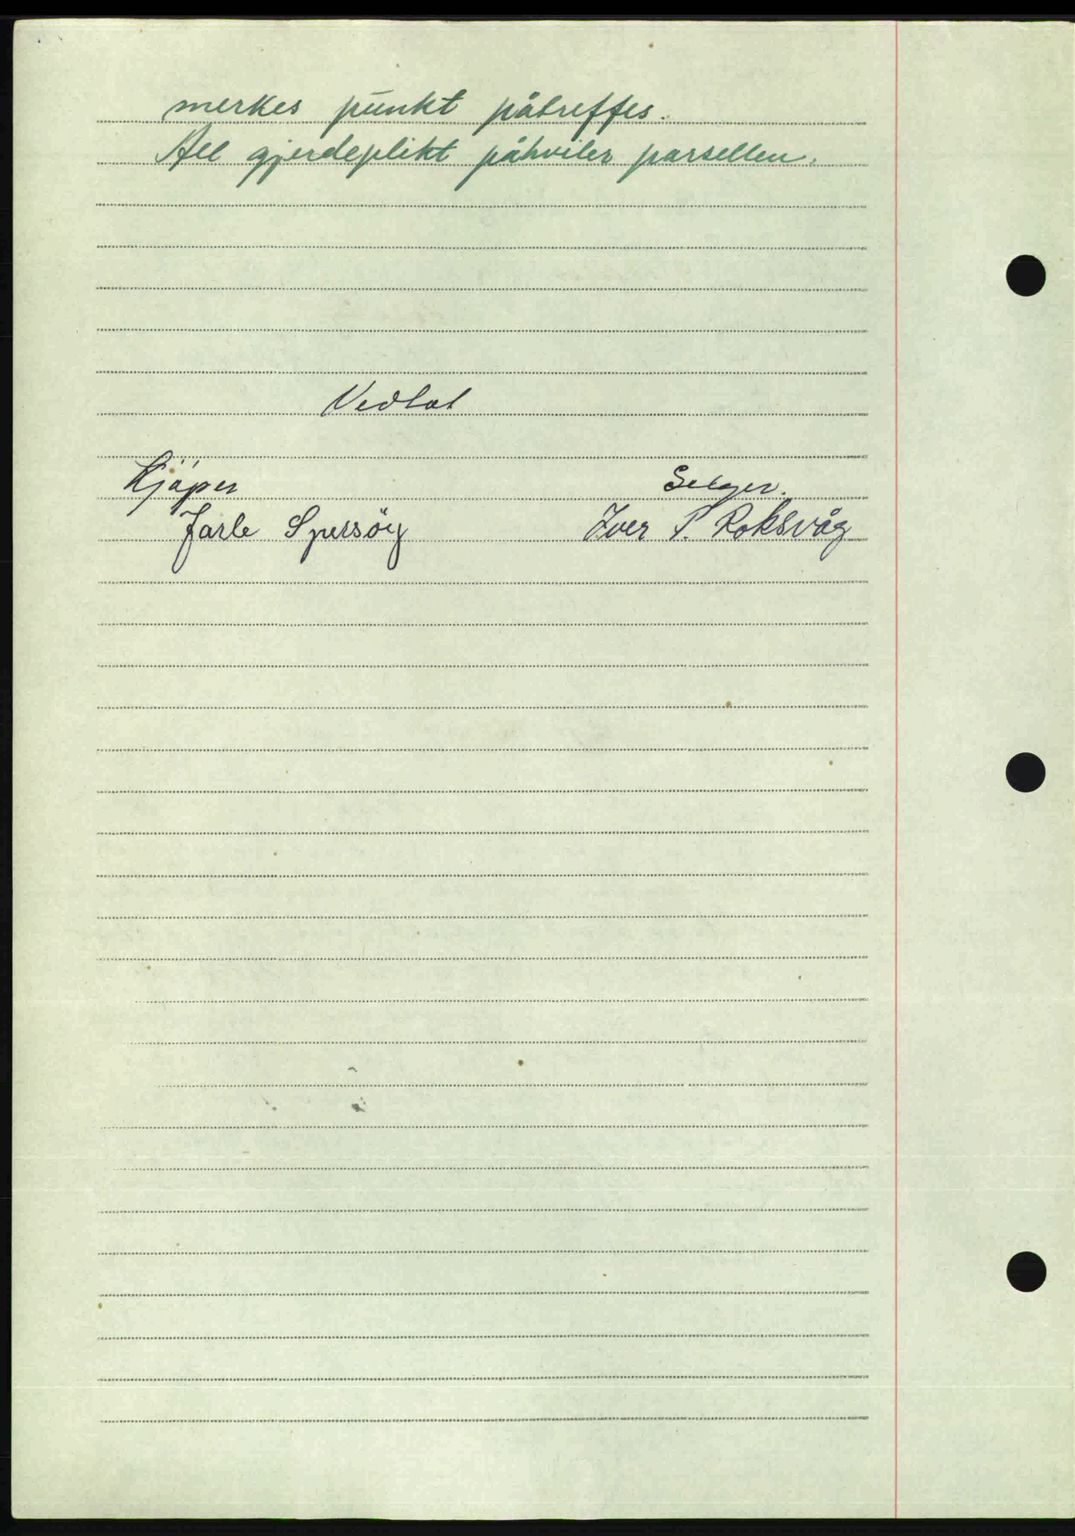 merkes punkt påtreffes.
All gjerdeplikt påhviler parsellen.
Vedtat
Kjøper
Selger.
Jarle Spersøy
Iver P. Roksvåg